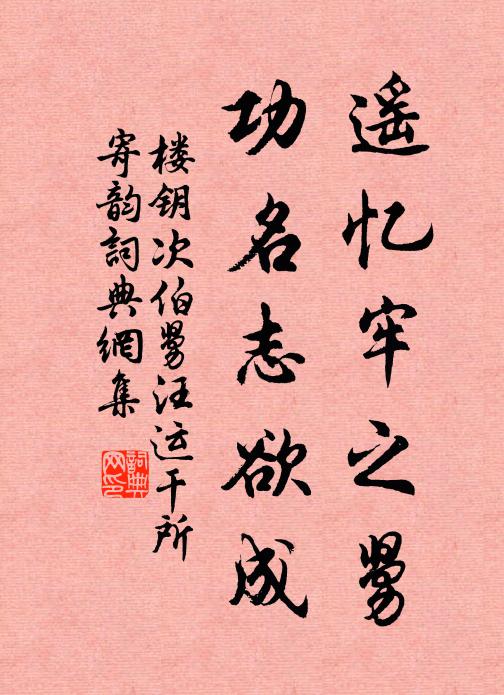 遥忆牢之舅
功名志欲成
楼钥次伯舅汪运干所
寄韵詞典網集
詞典网印